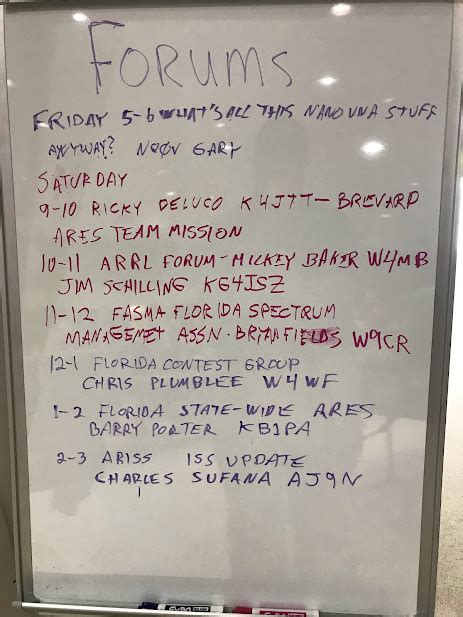 FORUMS
FRIDAY 5-6 WHAT'S ALL THIS NANOVNA STUFF
ANYWAY? NØØV GARY
SATURDAY
9-10 RICKY DELUCO K4JTT - BREVARD
ARES TEAM MISSION
10-11 ARRL FORUM - MICKEY BAKER W4MB
JIM SCHILLING KG4ISZ
11-12 FASMA FLORIDA SPECTRUM
MANAGEMET ASSN. BRYAN FIELDS W9CR
12-1 FLORIDA CONTEST GROUP
CHRIS PLUMBLEE W4WF
1-2 FLORIDA STATE-WIDE ARES
BARRY PORTER KB1PA
2-3 ARISS ISS UPDATE
CHARLES SUFANA AJ9N
EXPO